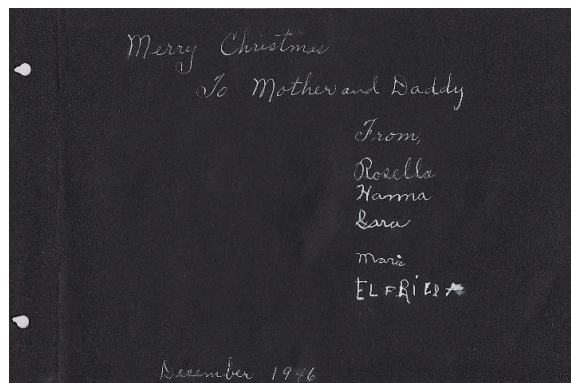 Merry Christmas
To Mother and Daddy
From,
Rosella
Hanna
Sara
Marie
ELFRiEDA
December 1946